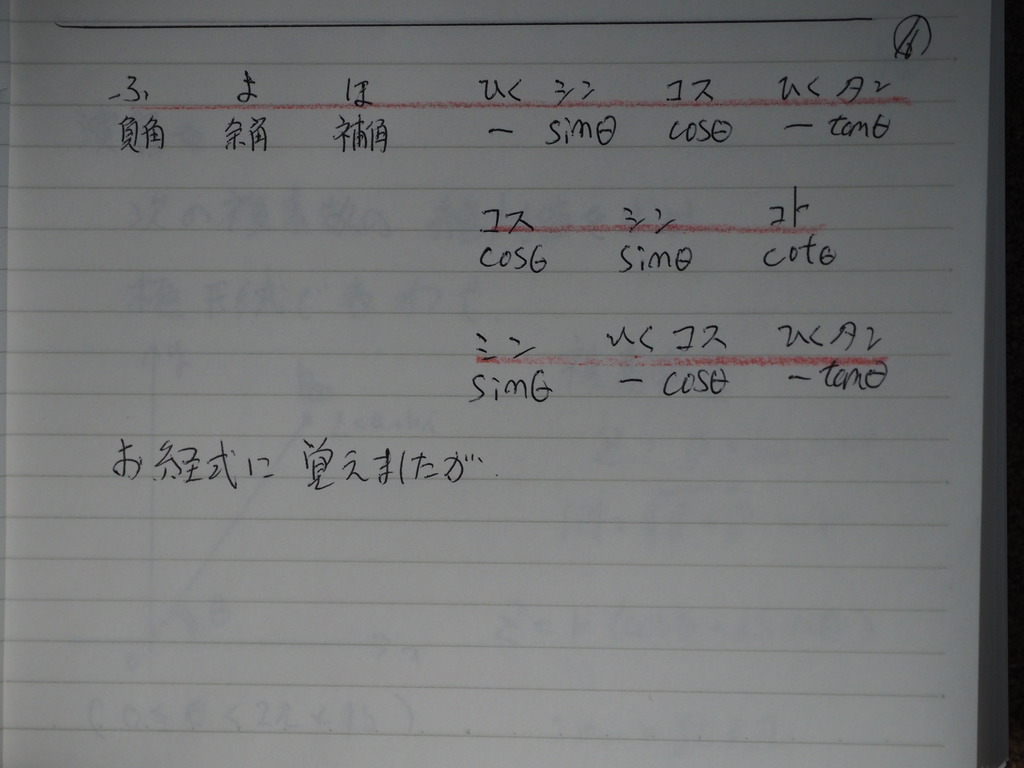 ふ よ ほ ひく シン コス ひく タン
負角 余角 補角 - sinθ cosθ - tanθ
コス シン コト
cosθ sinθ cotθ
シン ひく コス ひく タン
sinθ - cosθ - tanθ
お経式に 覚えましたが.